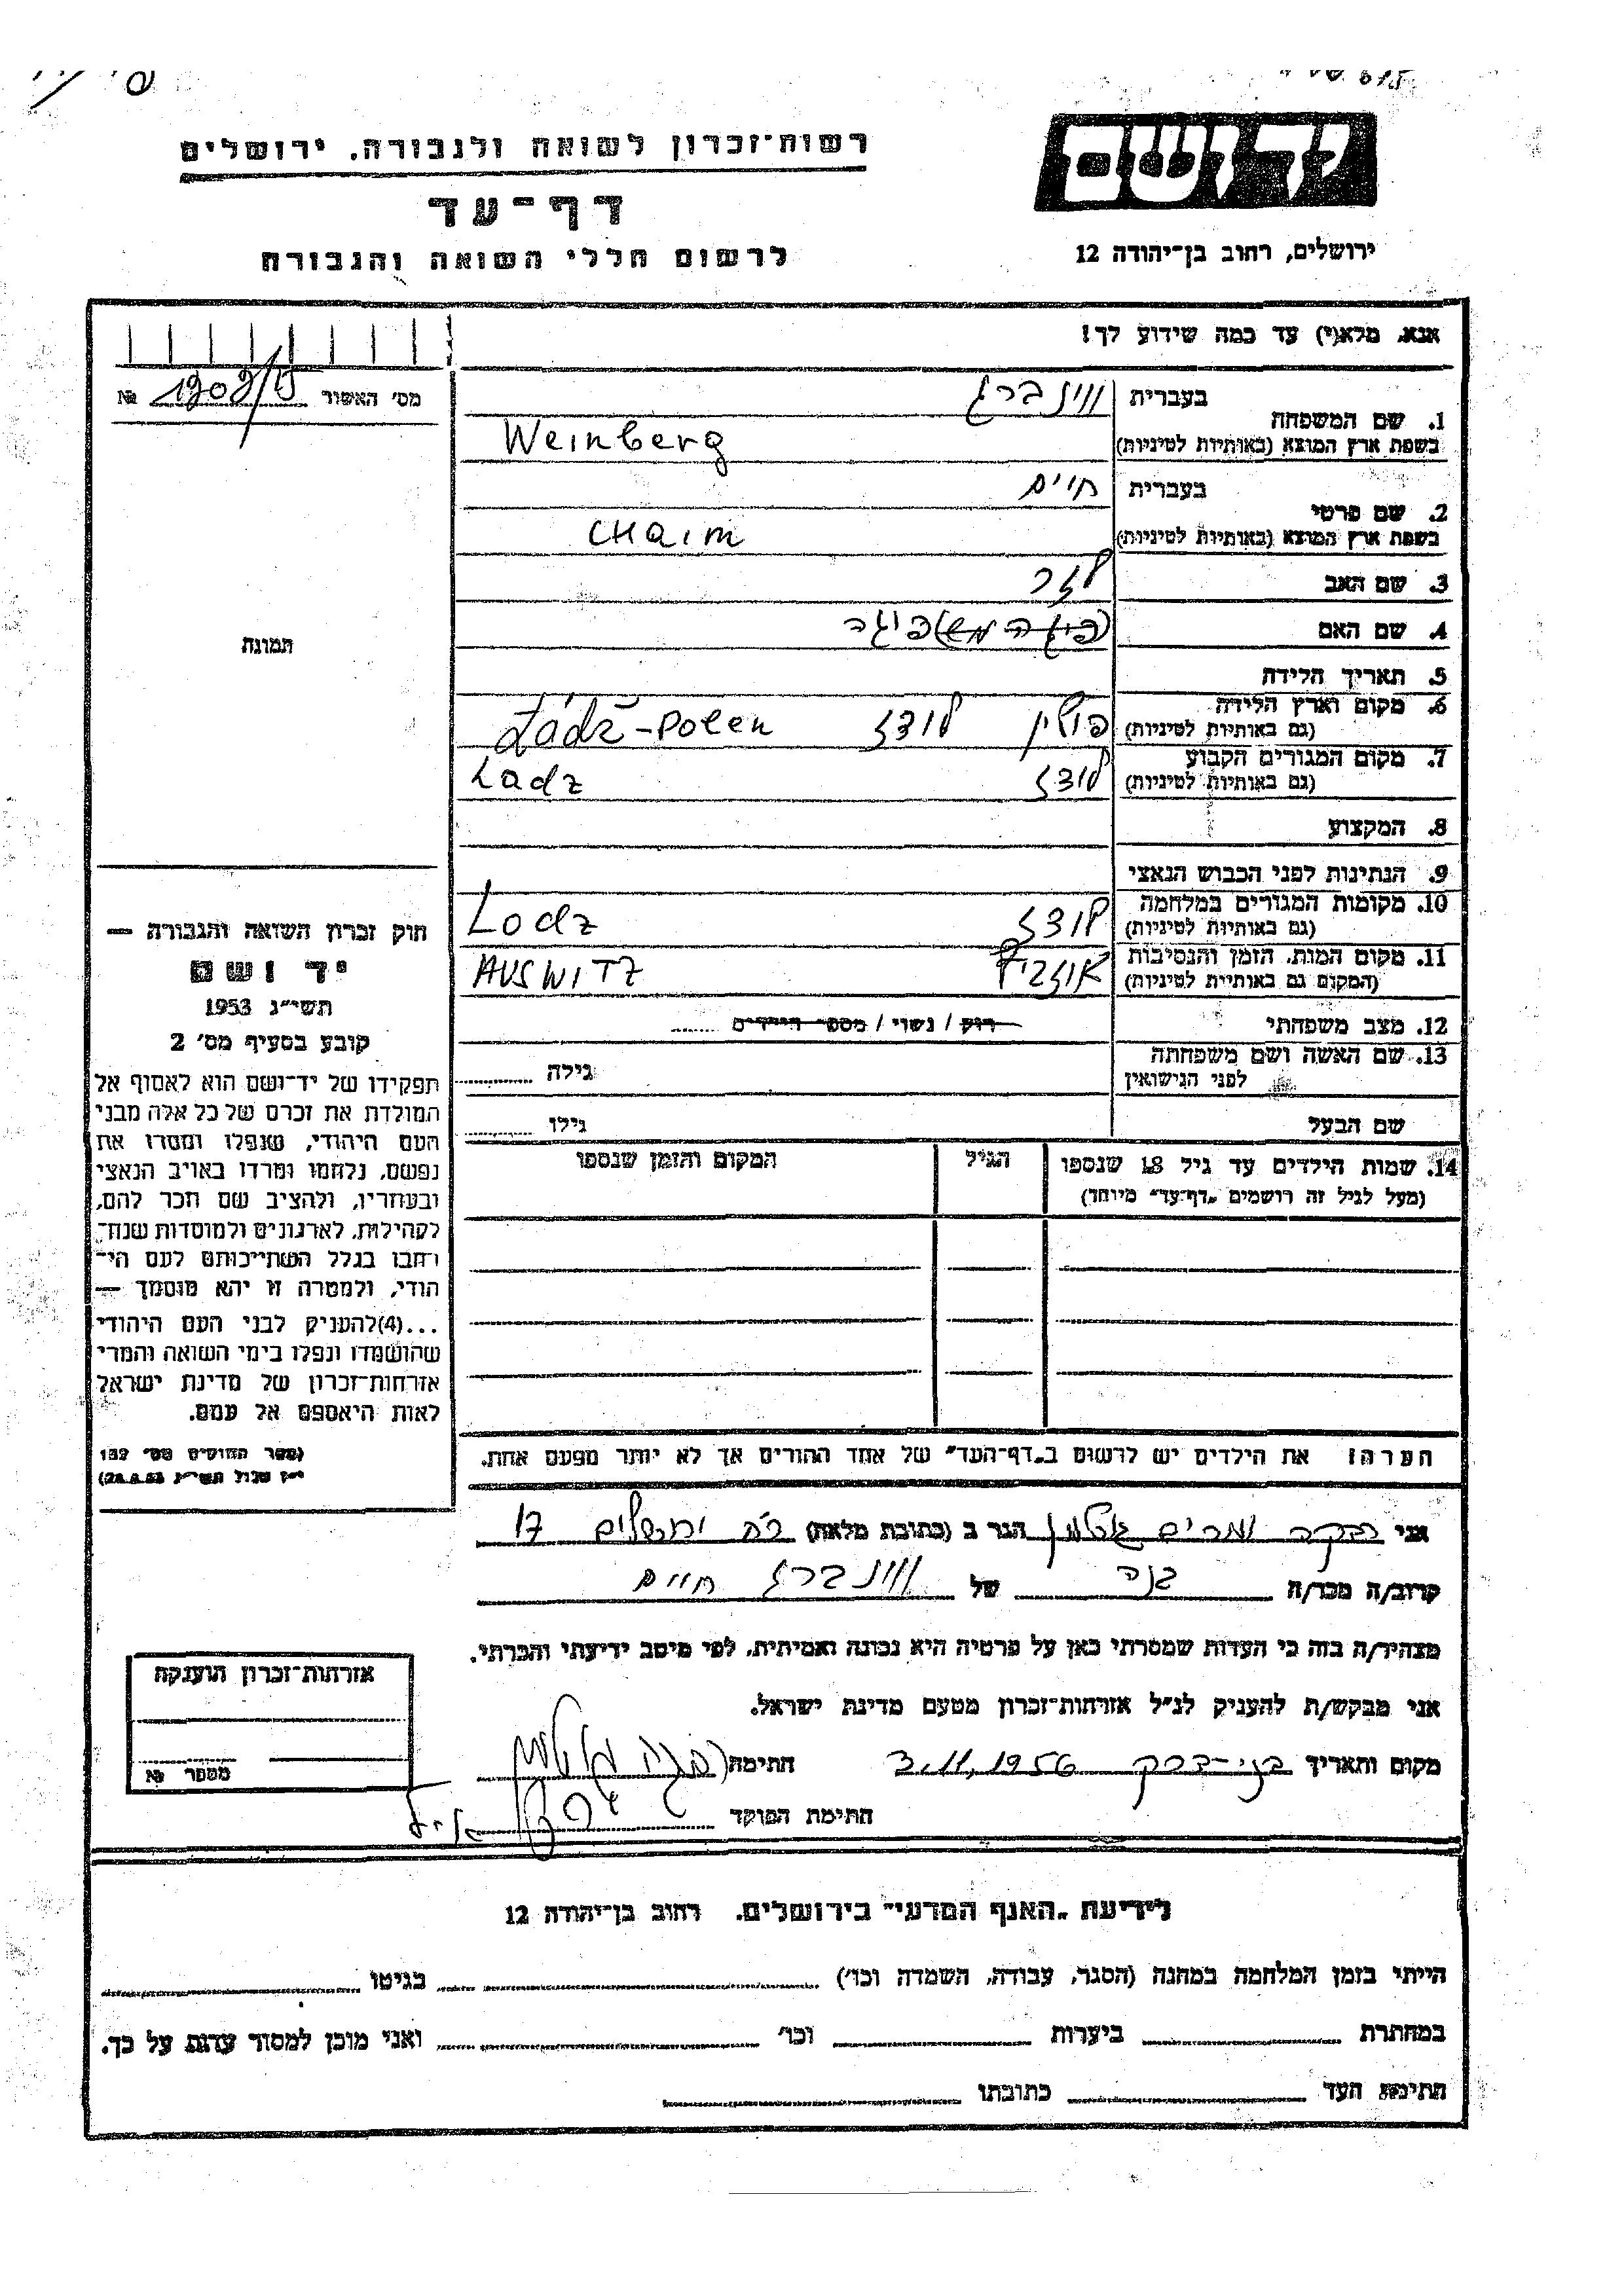 רשות־זכרון לשואה ולגבורה, ירושלים
יד ושם
דף־עד
ירושלים, רחוב בן־יהודה 12
לרשום חללי השואה והגבורה
אנא, מלא(י) עד כמה שידוע לך!
מס׳ האשור № 1909/15
1. שם המשפחה
בעברית ווינברג
בשפת ארץ המוצא (באותיות לטיניות) Weinberg
2. שם פרטי
בעברית חיים
בשפת ארץ המוצא (באותיות לטיניות) CHaim
3. שם האב לזר
4. שם האם פיגה
5. תאריך הלידה
6. מקום וארץ הלידה
(גם באותיות לטיניות) פולין לודז Łódź-Polen
7. מקום המגורים הקבוע
(גם באותיות לטיניות) לודז Lodz
8. המקצוע
9. הנתינות לפני הכבוש הנאצי
10. מקומות המגורים במלחמה
(גם באותיות לטיניות) לודז Lodz
11. מקום המות, הזמן והנסיבות
(המקום גם באותיות לטיניות) AUSWITZ
12. מצב משפחתי רוק / נשוי / מספר הילדים
13. שם האשה ושם משפחתה
לפני הנישואין גילה
שם הבעל גילו
14. שמות הילדים עד גיל 18 שנספו
(מעל לגיל זה רושמים „דף־עד״ מיוחד)
הגיל
המקום והזמן שנספו
הערה! את הילדים יש לרשום ב„דף־העד״ של אחד ההורים אך לא יותר מפעם אחת.
תמונה
חוק זכרון השואה והגבורה —
יד ושם
תשי״ג 1953
קובע בסעיף מס׳ 2
תפקידו של יד־ושם הוא לאסוף אל
המולדת את זכרם של כל אלה מבני
העם היהודי, שנפלו ומסרו את
נפשם, נלחמו ומרדו באויב הנאצי
ובעוזריו, ולהציב שם וזכר להם,
לקהילות, לארגונים ולמוסדות שנח־
רבו בגלל השתייכותם לעם הי־
הודי, ולמטרה זו יהא מוסמך —
...(4)להעניק לבני העם היהודי
שהושמדו ונפלו בימי השואה והמרי
אזרחות־זכרון של מדינת ישראל
לאות היאספם אל עמם.
(ספר החוקים מס׳ 132
י״ז אלול תשי״ג 28.8.53)
אני רבקה ומרים גוטליון הגר ב (כתובת מלאה) ירושלים 17
קרוב/ה מכר/ה של ווינברג חיים
מצהיר/ה בזה כי העדות שמסרתי כאן על פרטיה היא נכונה ואמיתית, לפי מיטב ידיעתי והכרתי.
אני מבקש/ת להעניק לנ״ל אזרחות־זכרון מטעם מדינת ישראל.
מקום ותאריך בני־ברק 3.11.1956 חתימה
חתימת הפוקד
אזרחות־זכרון הוענקה
מספר №
לידיעת „האגף המדעי״ בירושלים, רחוב בן־יהודה 12
הייתי בזמן המלחמה במחנה (הסגר, עבודה, השמדה וכו׳) בגיטו
במחתרת ביערות וכו׳ ואני מוכן למסור עדות על כך.
חתימת העד כתובתו